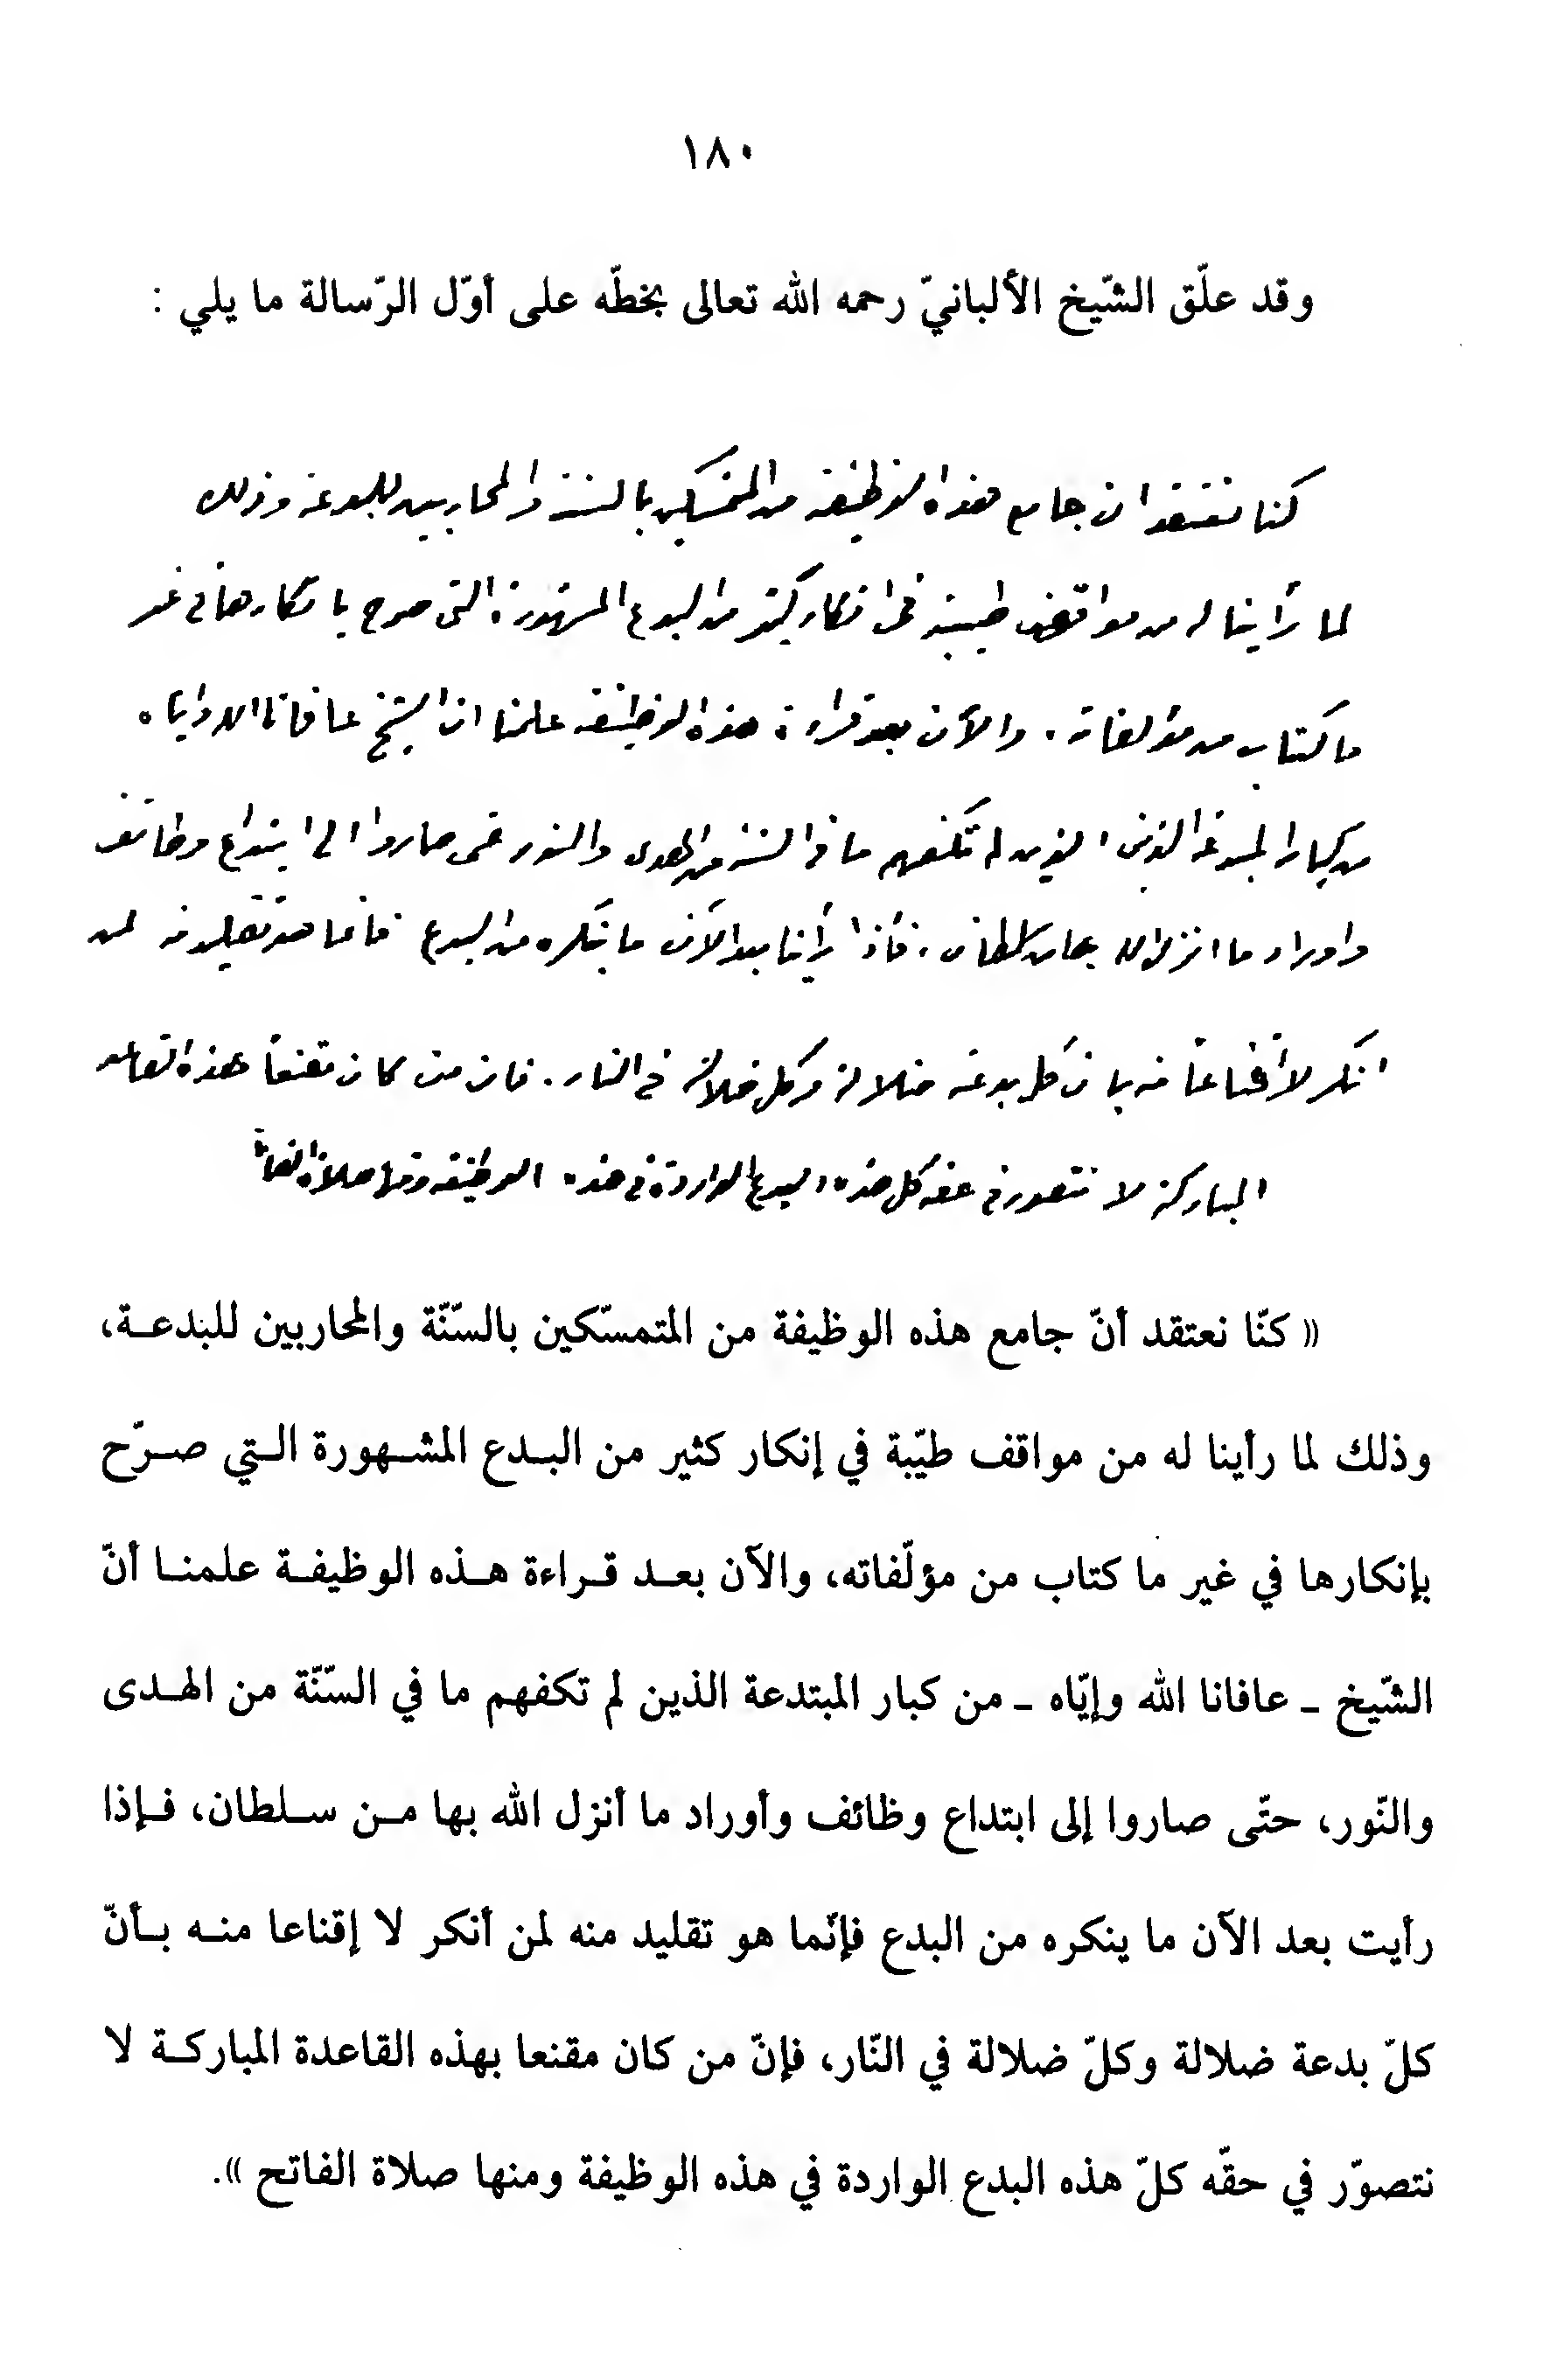 ١٨٠
وقد علّق الشّيخ الألبانيّ رحمه الله تعالى بخطّه على أوّل الرّسالة ما يلي :
كنا نعتقد ان جامع هذه الوظيفة من المتمسكين بالسنة والمحاربين للبدعة وذلك
لما رأينا له من مواقف طيبة في انكار كثير من البدع المشهورة التي صرح بانكارها في غير
ما كتاب من مؤلفاته . والآن بعد قراءة هذه الوظيفة علمنا ان الشيخ عافانا الله واياه
من كبار المبتدعة الذين لم تكفهم ما في السنة من الهدى والنور حتى صاروا الى ابتداع وظائف
واوراد ما انزل الله بها من سلطان . فأذا رأينا بعد الآن ما ينكره من البدع فانما هو تقليد منه لمن
انكر لا أقناعاً منه بان كل بدعة ضلالة وكل ضلالة في النار . فان من كان مقنعاً بهذه القاعدة
المباركة لا نتصور في حقه كل هذه البدع الواردة في هذه الوظيفة ومنها صلاة الفاتح
(( كنّا نعتقد أنّ جامع هذه الوظيفة من المتمسّكين بالسّنّة والمحاربين للبدعـة،
وذلك لما رأينا له من مواقف طيّبة في إنكار كثير من البـدع المشـهورة الـتي صـرّح
بإنكارها في غير ما كتاب من مؤلّفاته، والآن بعـد قـراءة هـذه الوظيفـة علمنـا أنّ
الشّيخ ـ عافانا الله وإيّاه ـ من كبار المبتدعة الذين لم تكفهم ما في السّنّة من الهـدى
والنّور، حتّى صاروا إلى ابتداع وظائف وأوراد ما أنزل الله بها مـن سـلطان، فـإذا
رأيت بعد الآن ما ينكره من البدع فإنّما هو تقليد منه لمن أنكر لا إقناعا منـه بـأنّ
كلّ بدعة ضلالة وكلّ ضلالة في النّار، فإنّ من كان مقنعا بهذه القاعدة المباركـة لا
نتصوّر في حقّه كلّ هذه البدع الواردة في هذه الوظيفة ومنها صلاة الفاتح )).